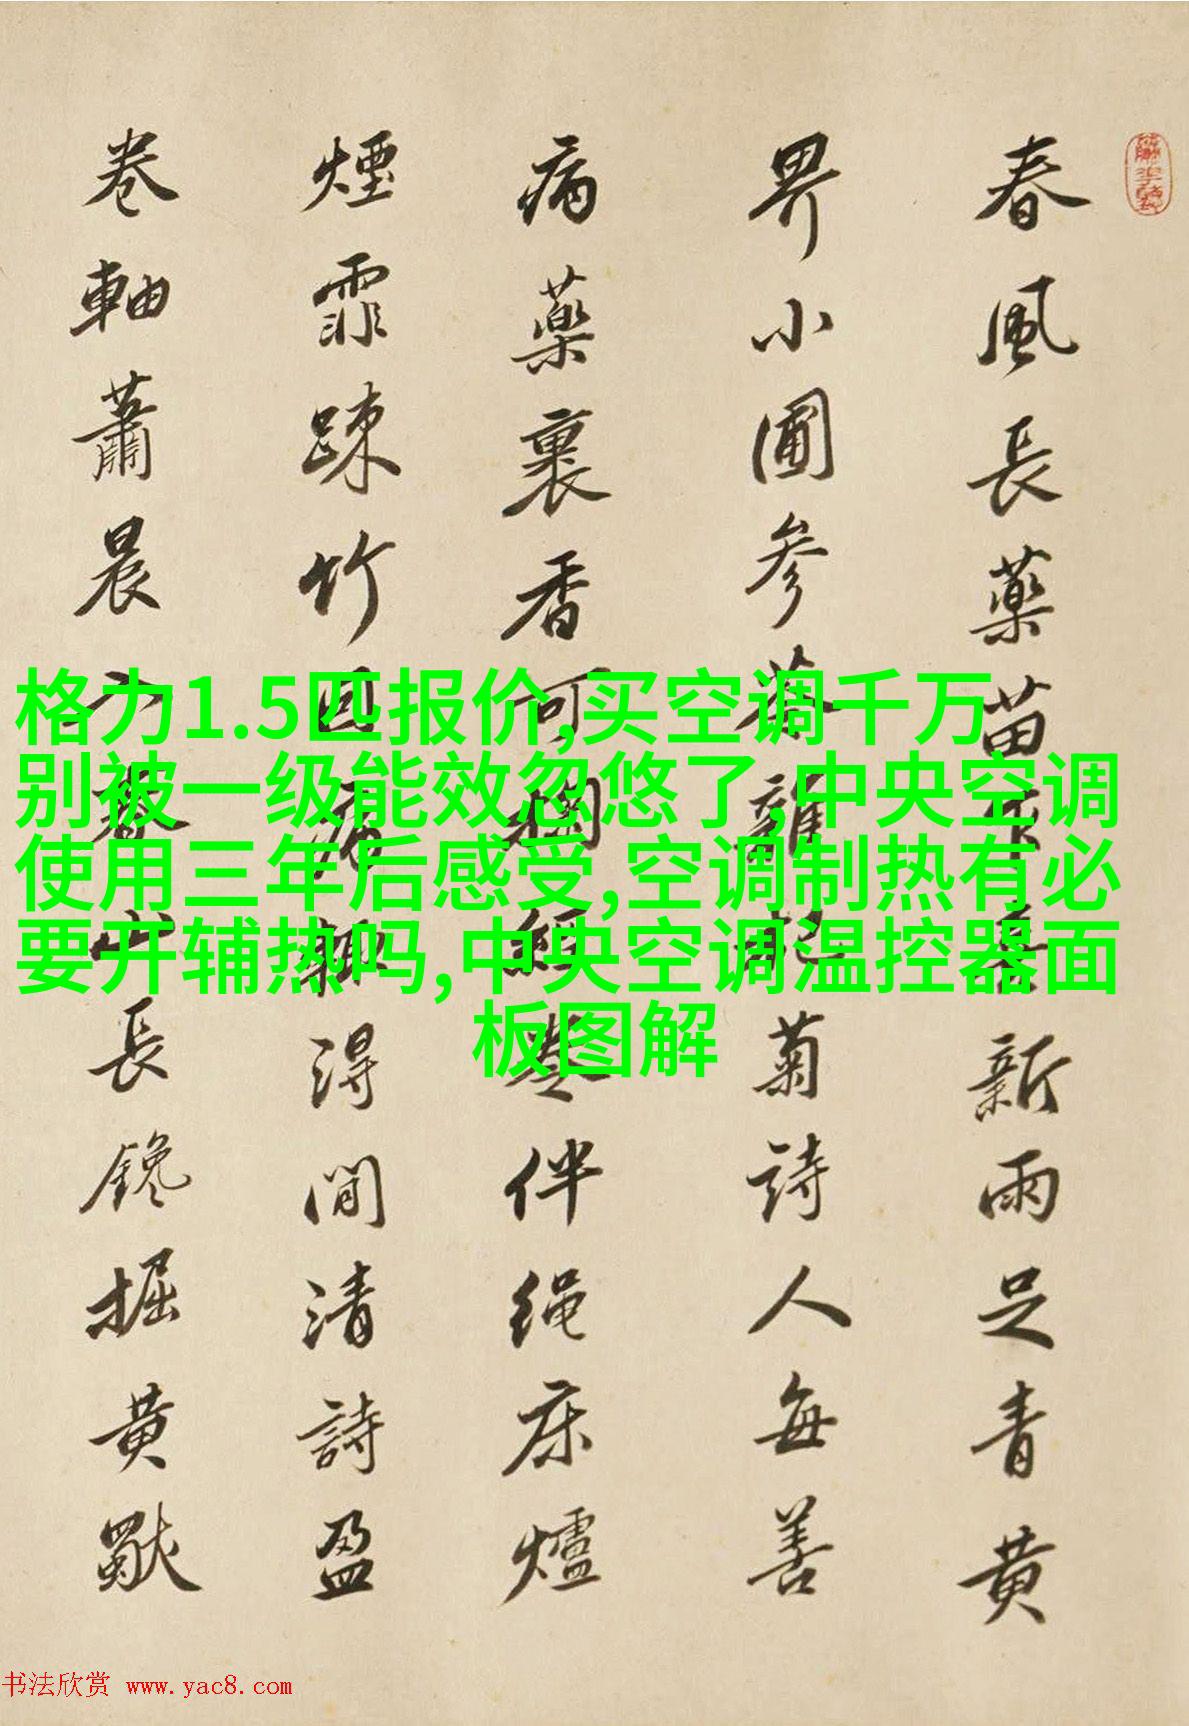 春風長藥苗新雨足青黃
界小圃參苓雜杞菊詩人每善
病藥裹香可掬經卷伴繩床爐
煙霏踈竹因病輒得閒清詩盈
卷軸蕭晨入春山長鑱掘黃
格力1.5匹报价,买空调千万
别被一级能效忽悠了,中央空调
使用三年后感受,空调制热有必
要开辅热吗,中央空调温控器面
板图解
书法欣赏 www.yac8.com